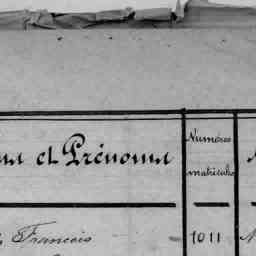 et Prénoms
Numéros
matricules
François 1011